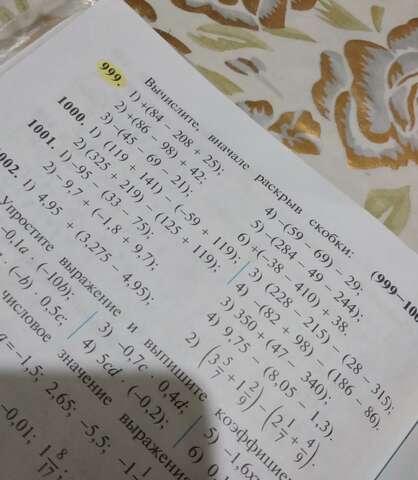 Вычислите, вначале раскрыв скобки: (999—100
999. 1) +(84 − 208 + 25); 4) −(59 − 69) − 29;
2) +(86 − 98) + 42; 5) −(284 − 49 − 244);
3) −(45 − 69 − 21); 6) +(−38 − 410) + 38.
1000. 1) (119 + 141) − (−59 + 119); 3) (228 − 215) − (28 − 315);
2) (325 + 219) − (125 + 119); 4) −(82 + 98) − (186 − 86).
1001. 1) −95 − (33 − 75); 3) 350 + (47 − 340);
2) −9,7 + (−1,8 + 9,7); 4) 9,75 − (8,05 − 1,3).
002. 1) 4,95 + (3,275 − 4,95); 2) (3 5/7 + 1 2/9) − (2 1/7 + 4/9).
Упростите выражение и выпишите коэффицие
−0,1a · (−10b); 3) −0,7c · 0,4d; 5) −1,6x
· (−b) · 0,5c; 4) 5cd · (−0,2); 6) 0,
числовое значение выражения
a = −1,5; 2,65; −5,5; −1
−0,01; 1 8/17;